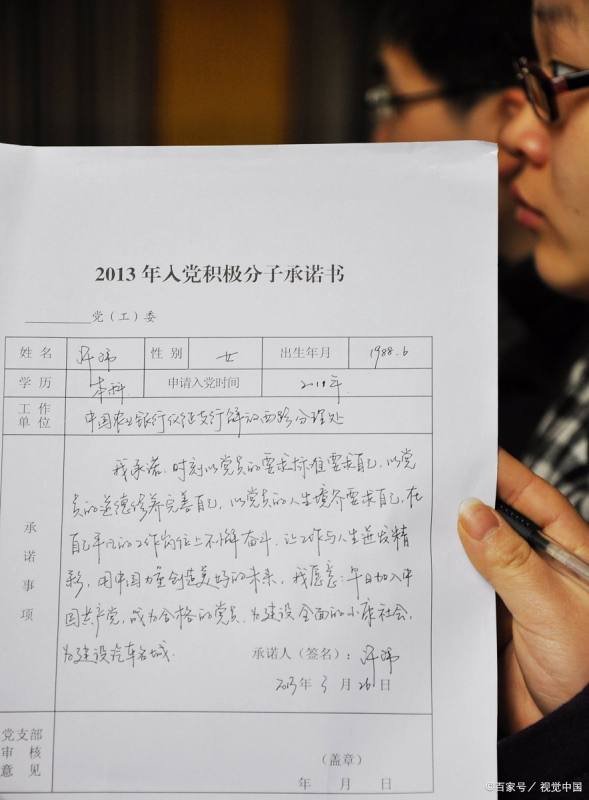 2013年入党积极分子承诺书
党（工）委
姓 名 许玮 性 别 女 出生年月 1988.6
学 历 本科 申请入党时间 2011年
工作单位 中国农业银行仪征支行解放西路分理处
承诺事项
我承诺：时刻以党员的要求标准要求自己，以党
员的道德修养完善自己，以党员的人生境界要求自己，在
自己平凡的工作岗位上不懈奋斗，让工作与人生迸发精
彩，用中国力量创造美好的未来。我愿意：早日加入中
国共产党，成为合格的党员，为建设全面的小康社会，
为建设汽车名城。
承诺人（签名）：许玮
2013年3月26日
党支部审核意见
（盖章）
年 月 日
©百家号／视觉中国